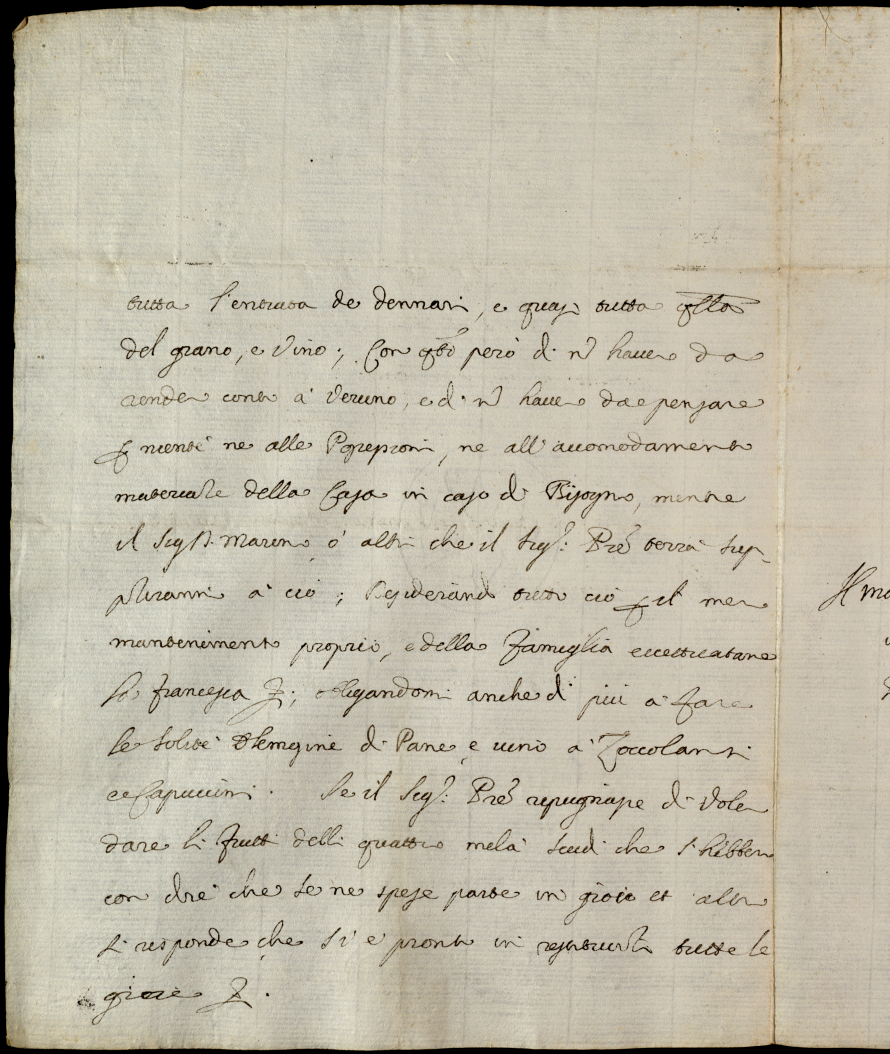 tutta l'entrata de dennari, e quasi tutta qlla
del grano, e vino; Con qsto però di nō haver da
render conto à Veruno, e di nō haver da pensare
niente ne alle Possessioni, ne all'accomodamento
materiale della Casa in caso di Bisogno, mentre
il Sigr. Marino ò altri che il Sigr: Pre vorrà sup-
pliranno à ciò; Desiderando tutto ciò il mero
mantenimento proprio, e della Famiglia eccettuatane
la Francesca; obligandomi anche di più à fare
le solite Elemosine di Pane e vino à Zoccolanti
e Capuccini. Se il Sigr: Pre repugnasse di voler
dare li frutti delli quattro mela scudi che s'hebbero
con dire che se ne spese parte in gioie et altro
si risponde che si è pronto in restituirli tutte le
gioie.
Il